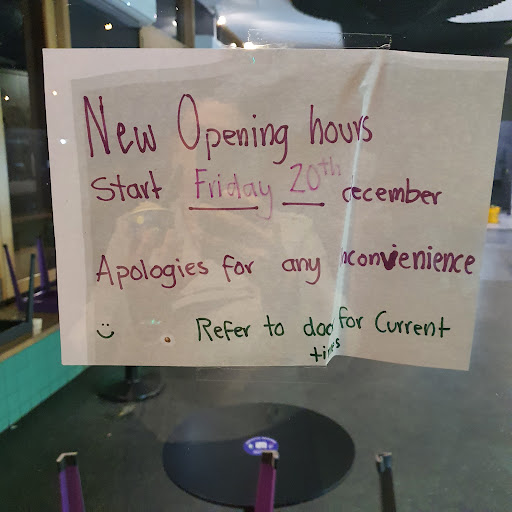 New Opening hours
Start Friday 20th december
Apologies for any inconvenience
Refer to door for Current
times